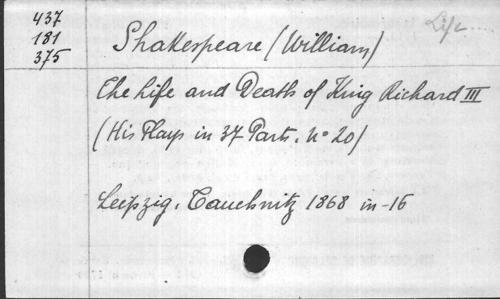 437
181
375
Shakespeare (William)
The Life and Death of King Richard III
(His Plays in 37 Parts. No 20)
Leipzig, Tauchnitz 1868 in-16